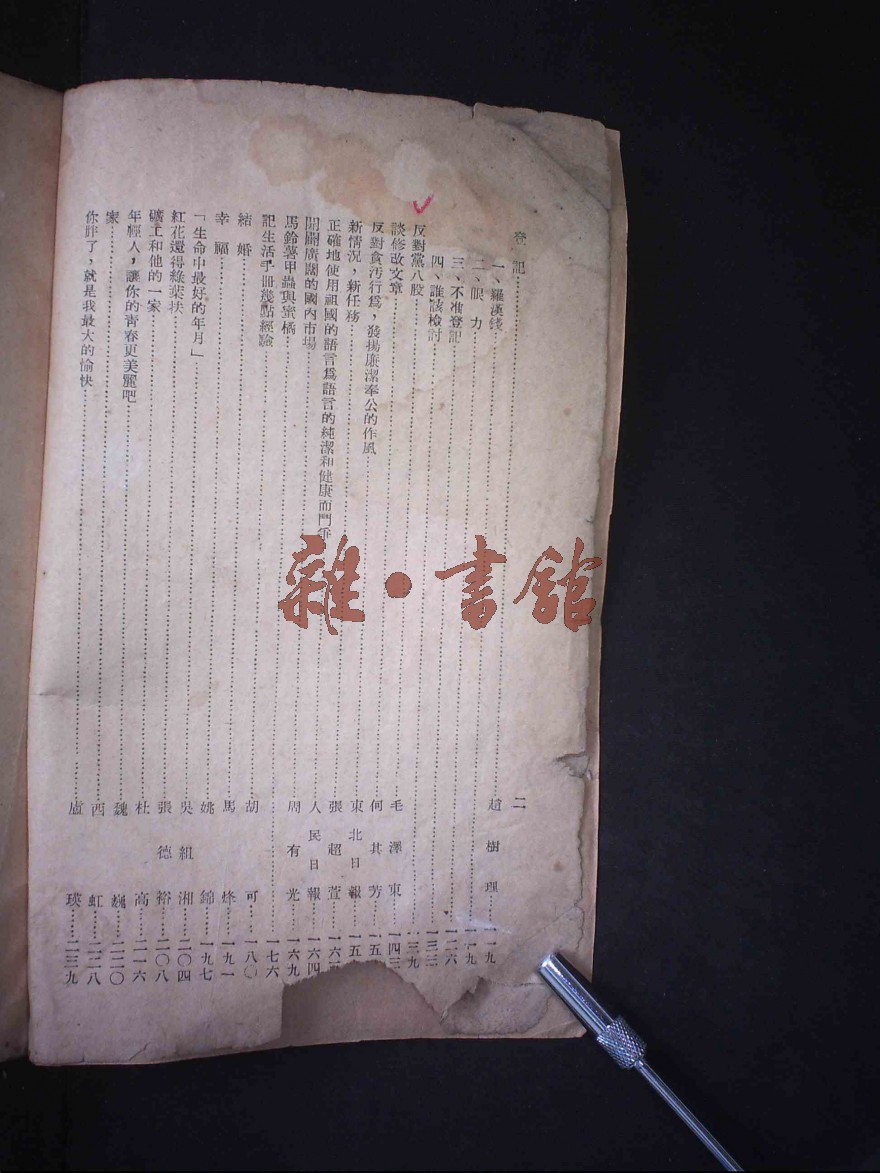 二
登記……趙樹理……一一九
一、羅漢錢……一一九
二、眼力……一二六
三、不准登記……一三二
四、誰該檢討……一三九
反對黨八股……毛澤東……一四三
談修改文章……何其芳……一五
反對貪污行爲，發揚廉潔奉公的作風……東北日報……一五
新情況，新任務……張超萱……一六
正確地使用祖國的語言爲語言的純潔和健康而鬥爭……人民日報……一六四
開闢廣闊的國內市場……周有光……一六九
馬鈴薯甲蟲與蜜橘……一七六
記生活手冊幾點經驗……胡可……一八〇
結婚……馬烽……一九一
幸福……姚錦……一九七
「生命中最好的年月」……吳組湘……二〇四
紅花還得綠葉扶……張德裕……二〇八
礦工和他的一家……杜高……二一六
年輕人，讓你的青春更美麗吧……魏巍……二二〇
家……西虹……二二八
你胖了，就是我最大的愉快……盧瑛……二三九
雜·書館